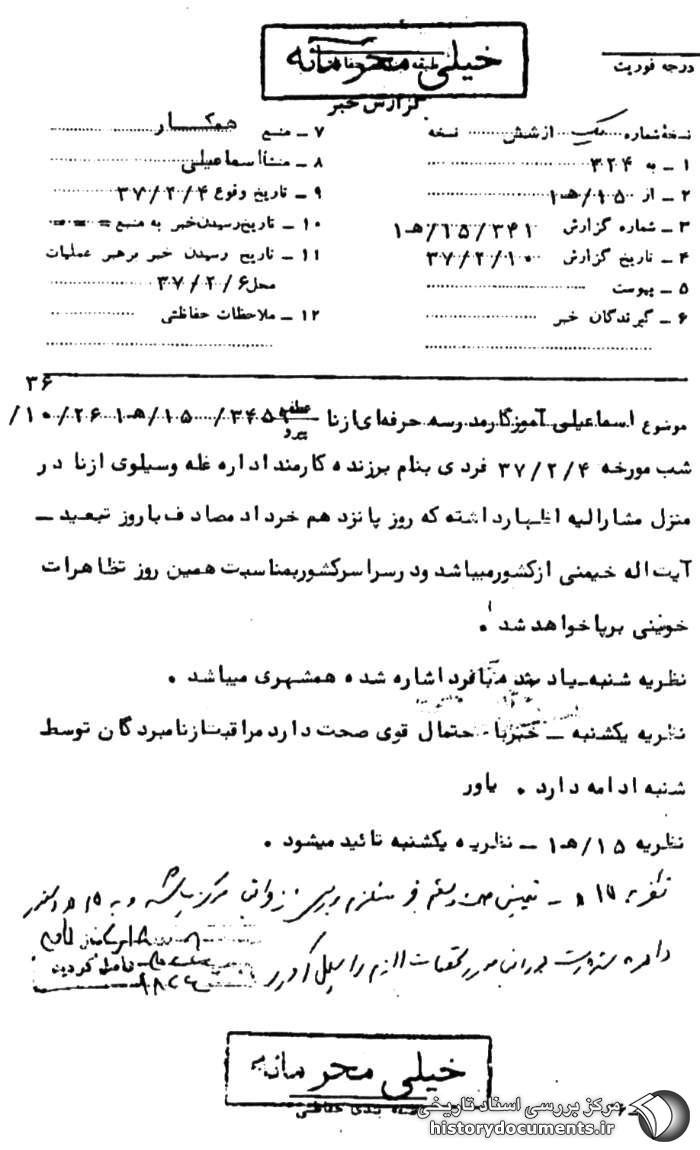 خیلی محرمانه
درجه فوریت
گزارش خبر
نسخهٔ شماره یک از شش نسخه
۱ ـ به ۳۲۴
۲ ـ از ۱۵/هـ۱
۳ ـ شماره گزارش ۳۴۱/۱۵/هـ۱
۴ ـ تاریخ گزارش ۳۷/۲/۱۰
۵ ـ پیوست
۶ ـ گیرندگان خبر
۷ ـ منبع همکار
۸ ـ منشأ اسماعیلی
۹ ـ تاریخ وقوع ۳۷/۲/۴
۱۰ ـ تاریخ رسیدن خبر به منبع = = =
۱۱ ـ تاریخ رسیدن خبر برهبر عملیات
محل ۳۷/۲/۶
۱۲ ـ ملاحظات حفاظتی
۳۶
موضوع اسماعیلی آموزگار مدرسه حرفه‌ای ازنا عطف پیرو ۳۴۵۹/۱۵/هـ۱ ۱۰/۲۶/
شب مورخه ۳۷/۲/۴ فردی بنام برزنده کارمند اداره غله وسیلوی ازنا در
منزل مشارالیه اظهارداشته که روز پانزدهم خرداد مصادف باروز تبعید ـ
آیت اله خیمنی ازکشورمیباشد ودرسراسرکشوربمناسبت همین روز تظاهرات
خونینی برپا خواهد شد .
نظریه شنبه ـ یاد شده بافرد اشاره شده همشهری میباشد .
نظریه یکشنبه ـ خبر با احتمال قوی صحت دارد مراقبت ازنامبردگان توسط
شنبه ادامه دارد . یاور
نظریه ۱۵/هـ۱ ـ نظریه یکشنبه تائید میشود .
خیلی محرمانه
طبقه بندی حفاظتی
مرکز بررسی اسناد تاریخی
historydocuments.ir